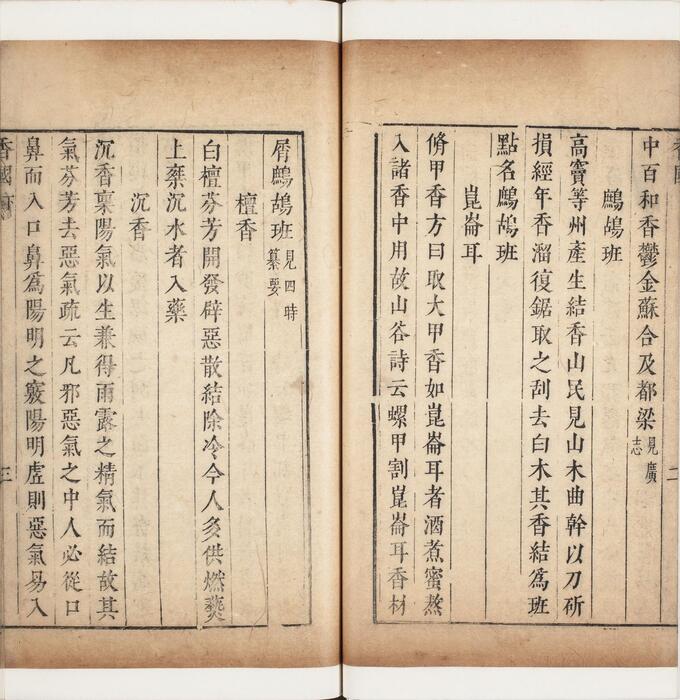 中百和香鬱金蘇合及都梁見廣志
鷓鴣班
高竇等州產生結香山民見山木曲幹以刀斫
損經年香溜復鋸取之刮去白木其香結為班
點名鷓鴣班
崑崙耳
脩甲香方曰取大甲香如崑崙耳者酒煮蜜熬
入諸香中用故山谷詩云螺甲割崑崙耳香材
屑鷓鴣班見四時纂要
檀香
白檀芬芳開發辟惡散結除冷令人多供燃爇
上藥沉水者入藥
沉香
沉香稟陽氣以生兼得雨露之精氣而結故其
氣芬芳去惡氣疏云凡邪惡氣之中人必從口
鼻而入口鼻為陽明之竅陽明虛則惡氣易入
香國
三
二